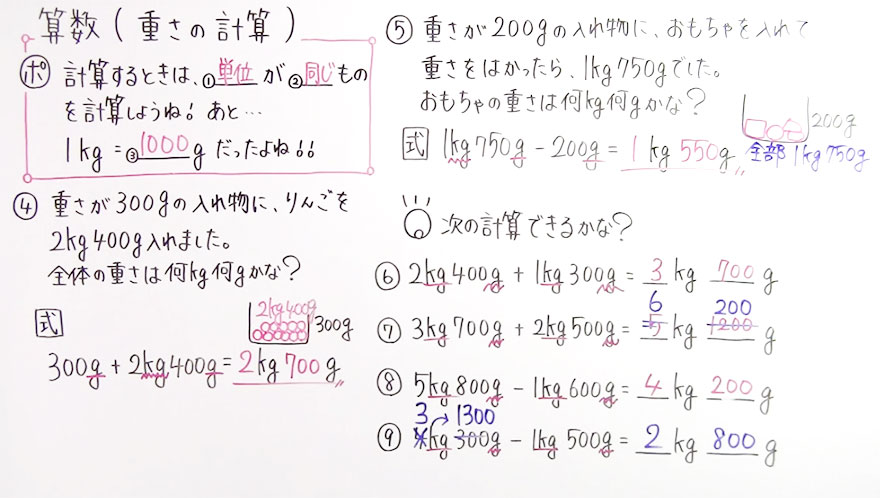 算数(重さの計算)
ポ 計算するときは、①単位が②同じもの
を計算しようね！あと…
1kg=③1000gだったよね！！
④ 重さが300gの入れ物に、りんごを
2kg400g入れました。
全体の重さは何kg何gかな？
式
2kg400g
300g
300g+2kg400g=2kg700g
⑤ 重さが200gの入れ物に、おもちゃを入れて
重さをはかったら、1kg750gでした。
おもちゃの重さは何kg何gかな？
200g
式 1kg750g-200g=1kg550g
全部1kg750g
次の計算できるかな？
⑥ 2kg400g+1kg300g=3kg 700g
6 200
⑦ 3kg700g+2kg500g=5kg 1200g
⑧ 5kg800g-1kg600g=4kg 200g
3 1300
⑨ 4kg300g-1kg500g=2kg 800g